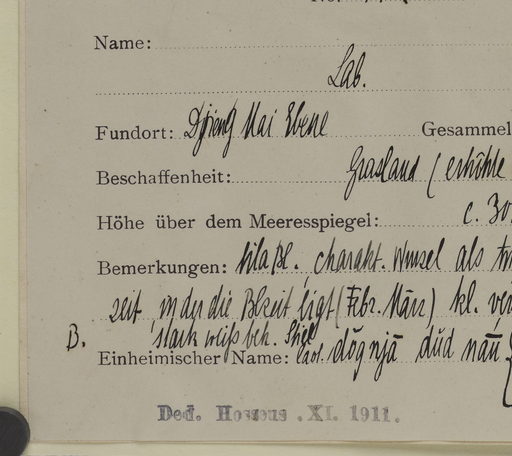 Name:
Lab.
Fundort: Djieng Mai Ebene Gesammel
Beschaffenheit: Grasland (erhöhte
Höhe über dem Meeresspiegel: c. 30
Bemerkungen: lila Bl., charakt. Wurzel als
zeit, in der die Blzeit ligt (Febr. März) kl.
B. stark weiß beh. Stiel
Einheimischer Name: laot. dōgnjā dūd nāu
Ded. Hosseus .XI. 1911.